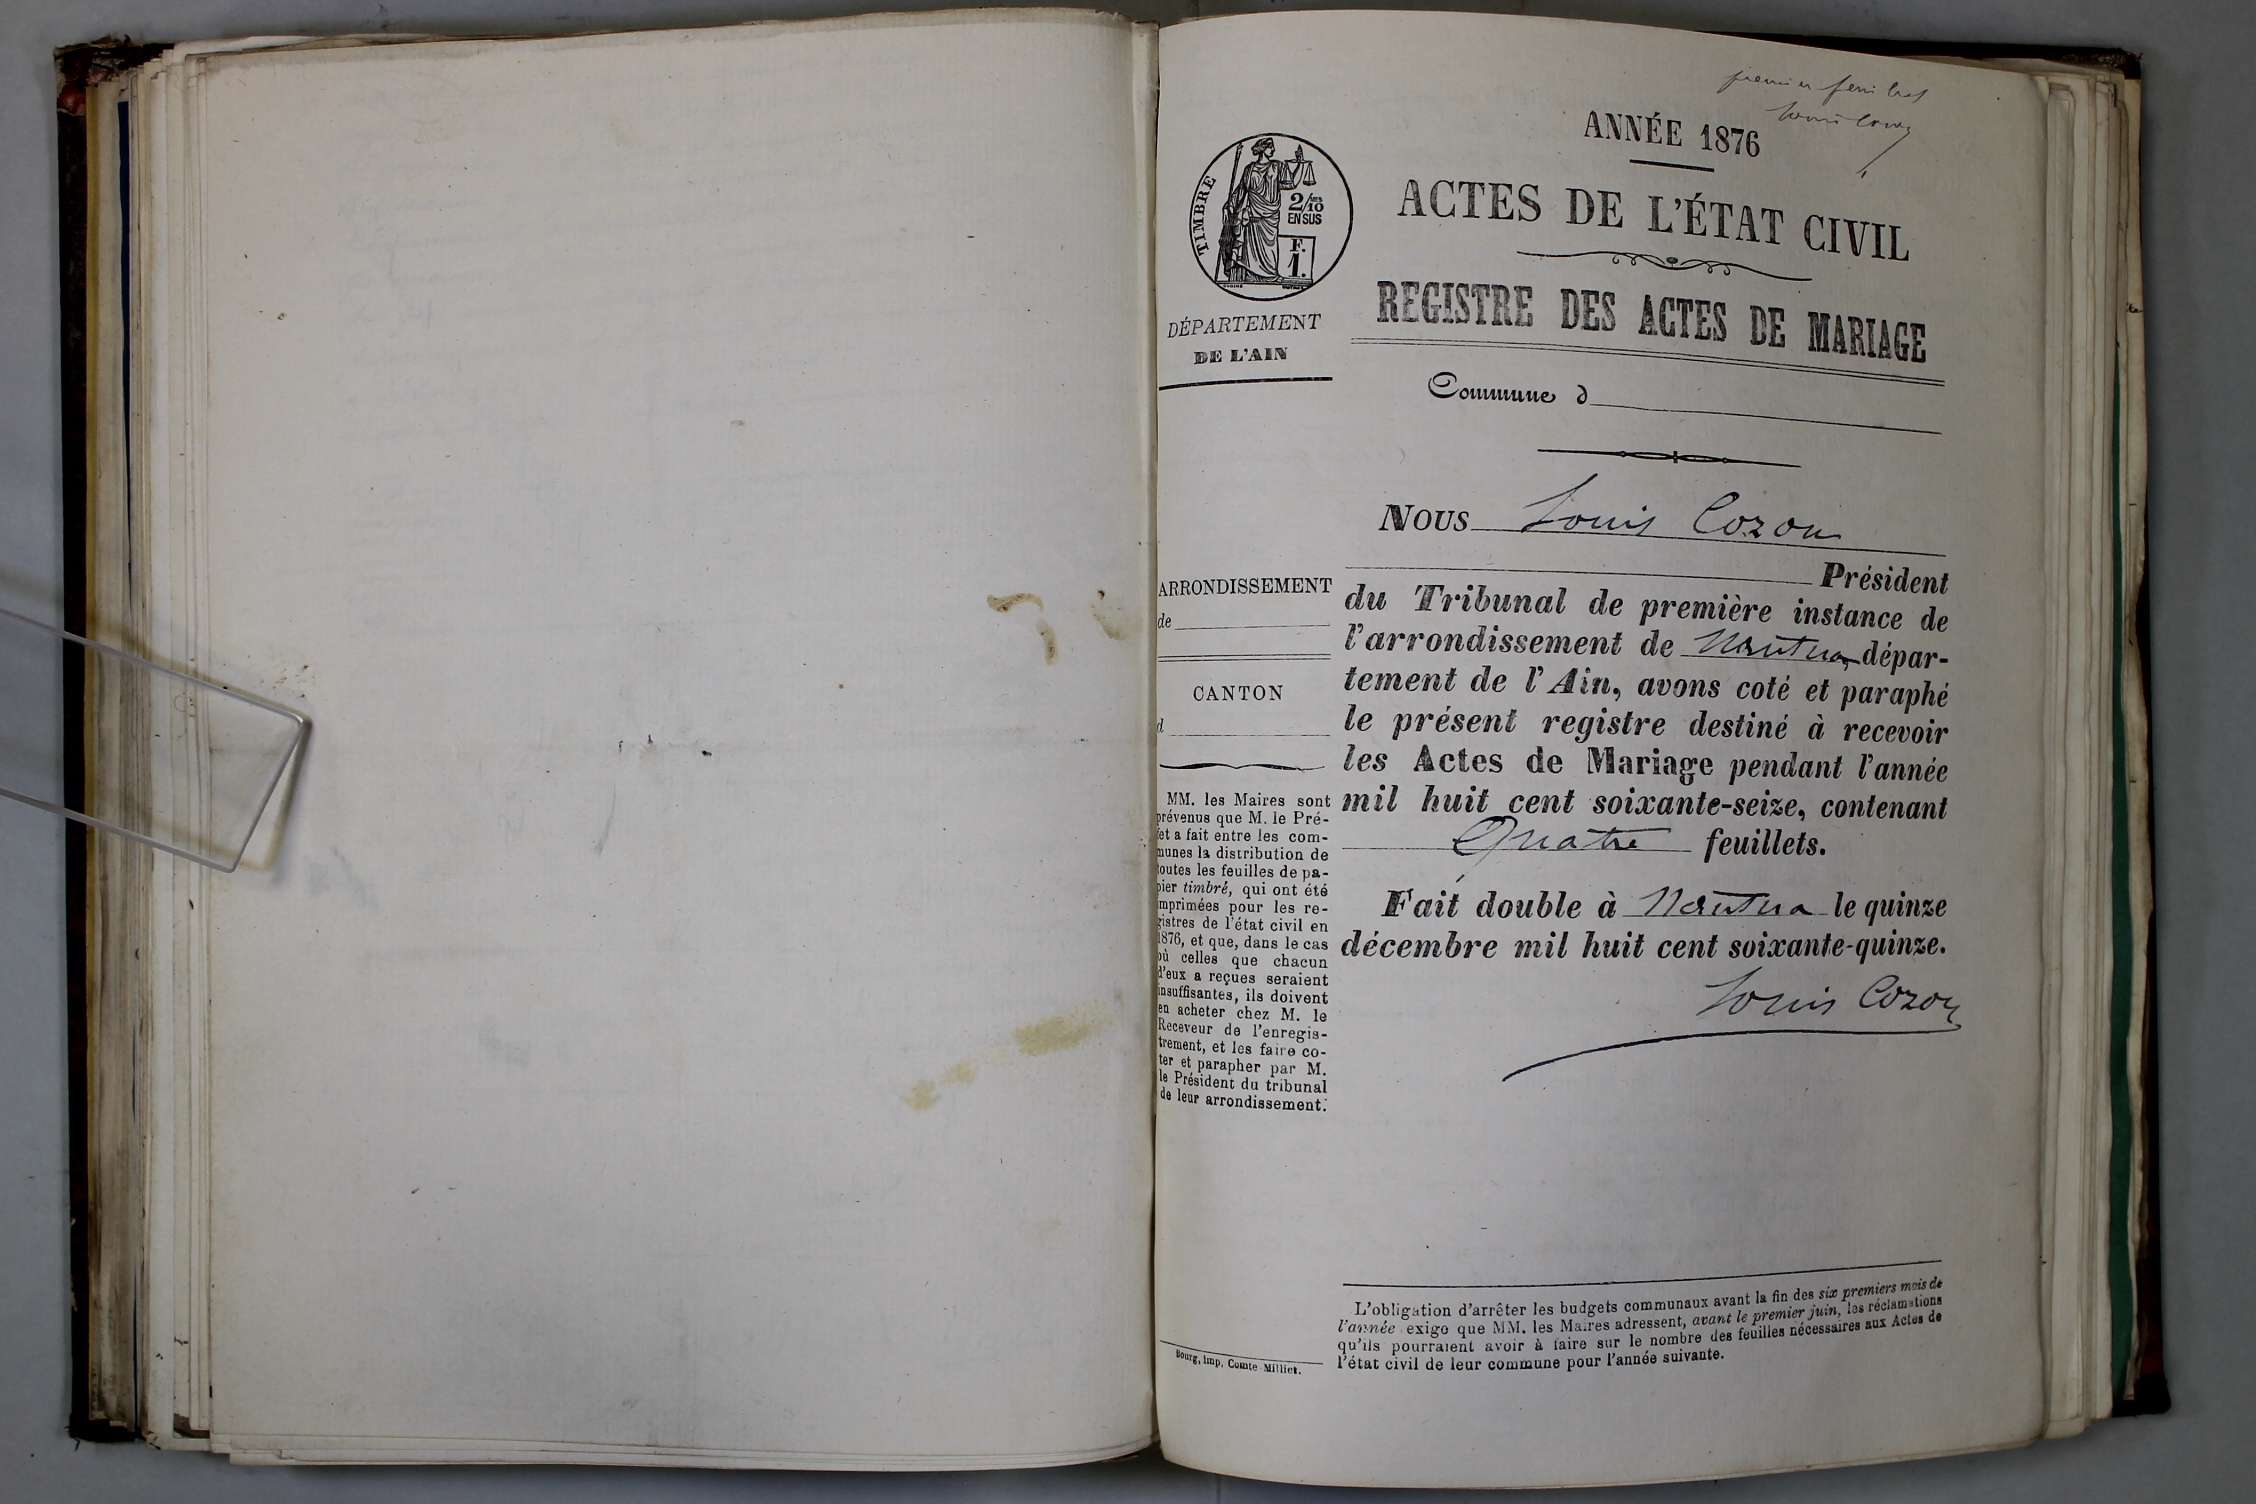 premier feuillet
Louis Cozon
ANNÉE 1876
TIMBRE
2/10 EN SUS
F.
1.
ACTES DE L'ÉTAT CIVIL
REGISTRE DES ACTES DE MARIAGE
DÉPARTEMENT
DE L'AIN
Commune d
NOUS Louis Cozon
Président
du Tribunal de première instance de
l'arrondissement de Nantua dépar-
tement de l'Ain, avons coté et paraphé
le présent registre destiné à recevoir
les Actes de Mariage pendant l'année
mil huit cent soixante-seize, contenant
Quatre feuillets.
Fait double à Nantua le quinze
décembre mil huit cent soixante-quinze.
Louis Cozon
ARRONDISSEMENT
de
CANTON
d
MM. les Maires sont
prévenus que M. le Pré-
fet a fait entre les com-
munes la distribution de
toutes les feuilles de pa-
pier timbré, qui ont été
imprimées pour les re-
gistres de l'état civil en
1876, et que, dans le cas
où celles que chacun
d'eux a reçues seraient
insuffisantes, ils doivent
en acheter chez M. le
Receveur de l'enregis-
trement, et les faire co-
ter et parapher par M.
le Président du tribunal
de leur arrondissement.
L'obligation d'arrêter les budgets communaux avant la fin des six premiers mois de
l'année exige que MM. les Maires adressent, avant le premier juin, les réclamations
qu'ils pourraient avoir à faire sur le nombre des feuilles nécessaires aux Actes de
l'état civil de leur commune pour l'année suivante.
Bourg, imp. Comte Milliet.